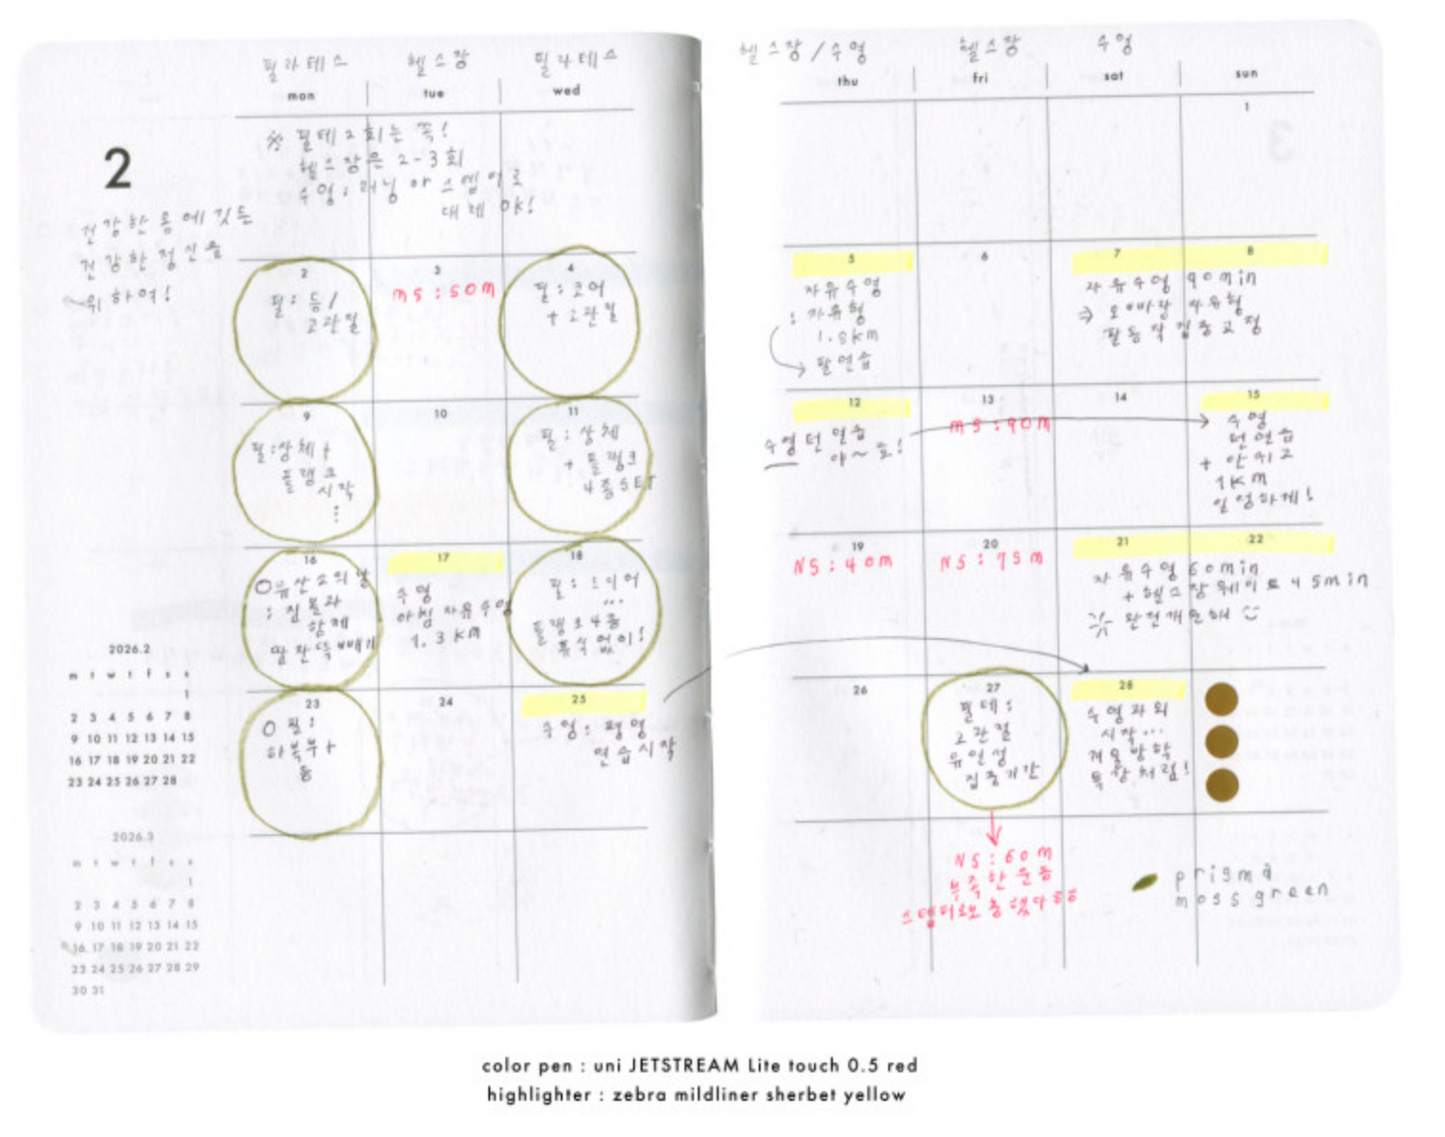 필라테스 헬스장 필라테스 헬스장/수영 헬스장 수영
mon tue wed thu fri sat sun
2
※ 필테2회는 꼭!
헬스장은 2-3회
수영; 러닝 or 스텝머로
대체 OK!
건강한 몸에 깃든
건강한 정신을
위하여!
1
2
필: 등/
고관절
3
MS:50M
4
필: 코어
+ 고관절
5
자유수영
: 자유형
1.5km
→ 팔연습
6
7 8
자유수영 90min
⇒ 오빠랑 자유형
팔동작집중교정
9
필:상체+
플랭크
시작
⋮
10
11
필: 상체
+ 플랭크
4종SET
12
수영턴연습
아~호!
13
MS:90M
14
15
수영
턴연습
+ 안쉬고
1KM
16
유산소의날
:집몰라
함께
땀잔뜩빼기
17
수영
아침자유수영
1.3KM
18
필:
...
플랭크4종
휴식없이!
19
NS:40M
20
NS:75M
21 22
자유수영60min
+헬스장웨이트45min
완전개운해
23
필:
하복부+
등
24
25
수영: 평영
연습시작
26
27
필테:
고관절
유일성
집중기간
28
수영과외
시작...
겨울방학
특강처럼!
NS:60M
부족한운동
prisma
moss green
2026.2
m t w t f s s
1
2 3 4 5 6 7 8
9 10 11 12 13 14 15
16 17 18 19 20 21 22
23 24 25 26 27 28
2026.3
m t w t f s s
1
2 3 4 5 6 7 8
9 10 11 12 13 14 15
16 17 18 19 20 21 22
23 24 25 26 27 28 29
30 31
color pen : uni JETSTREAM Lite touch 0.5 red
highlighter : zebra mildliner sherbet yellow